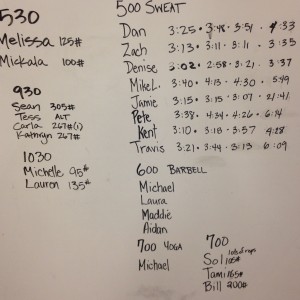 530
Melissa 125#
Mickala 100#
930
Sean 305#
Tess ALT
Carla 267#(1)
Kathryn 267#
1030
Michelle 95#
Lauren 135#
500 SWEAT
Dan 3:25 · 3:48 · 3:51 · 4:33
Zach 3:13 · 3:11 · 3:11 · 3:35
Denise 3:02 · 2:58 · 3:21 · 3:37
Mike L. 3:40 · 4:13 · 4:30 · 5:49
Jamie 3:15 · 3:15 · 3:07 ·
Pete 3:38 · 4:34 · 4:26 · 6:14
Kent 3:10 · 3:18 · 3:57 · 4:28
Travis 3:21 · 3:44 · 3:13 · 6:09
600 BARBELL
Michael
Laura
Maddie
Aidan
700 YOGA
Michael
700
lots of reps
Sol 105#
Tami 165#
Bill 200#